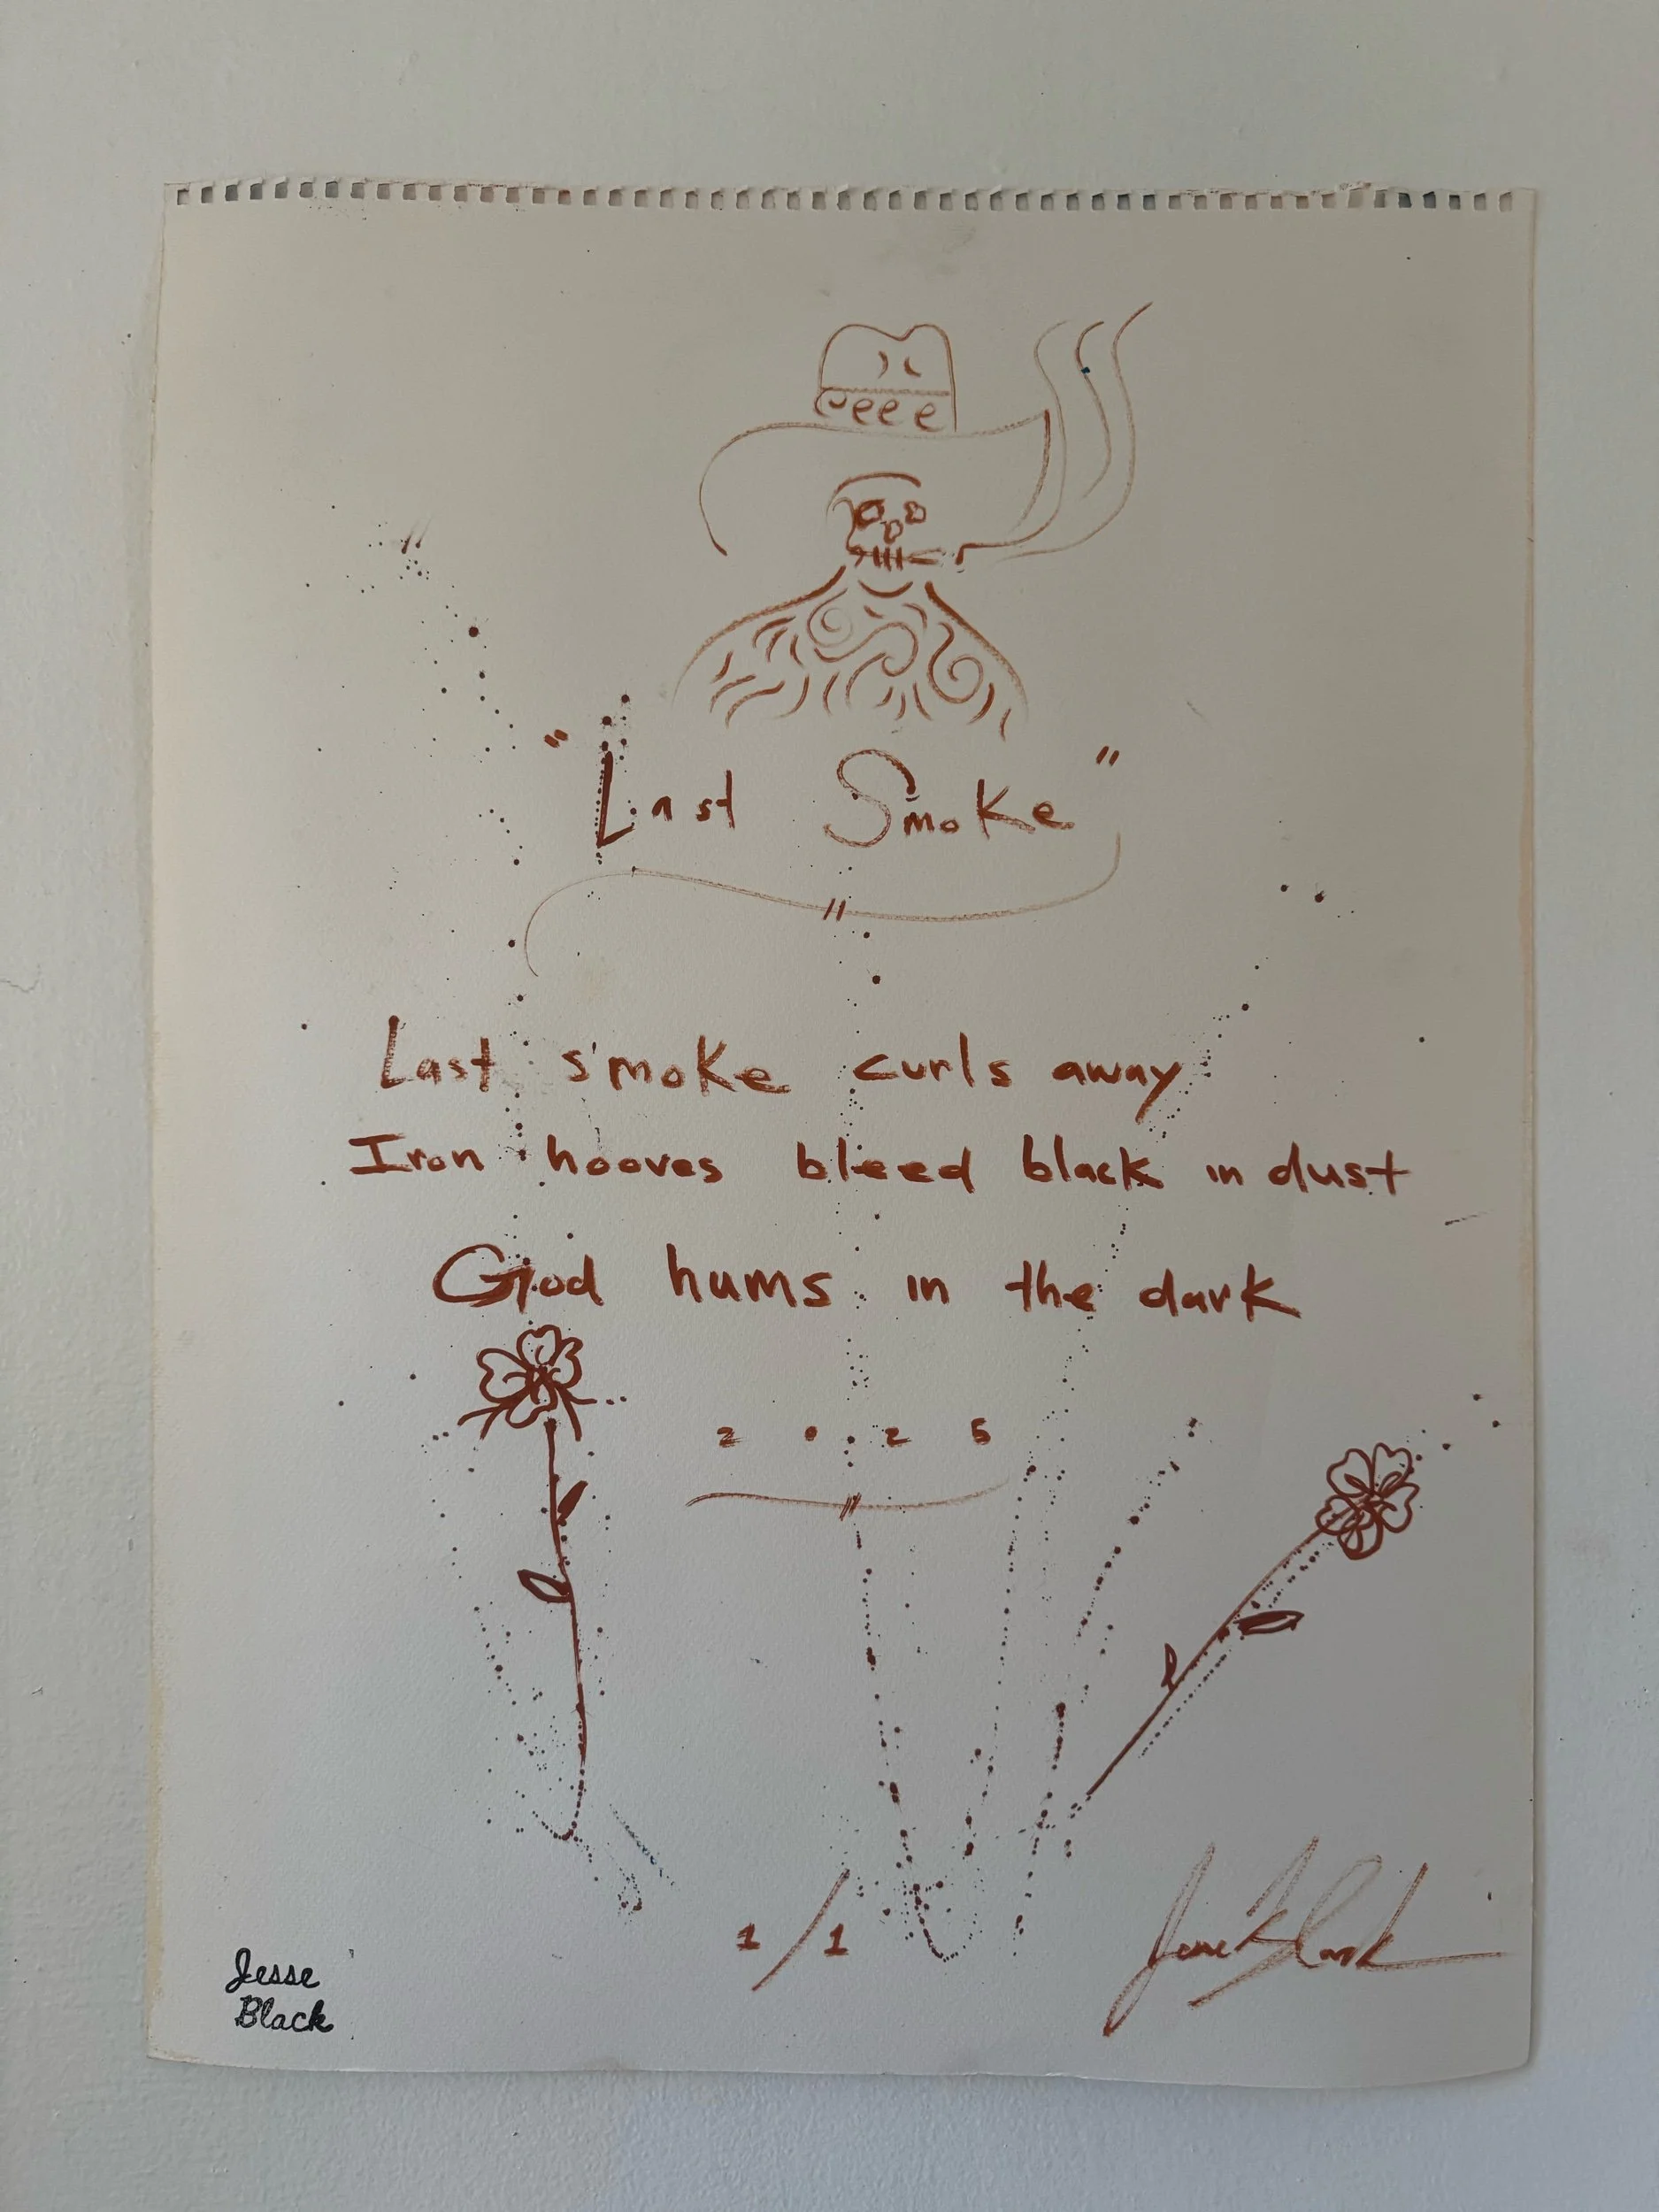 "Last Smoke"
Last smoke curls away
Iron hooves bleed black in dust
God hums in the dark
2025
1/1
Jesse Black
Jesse
Black